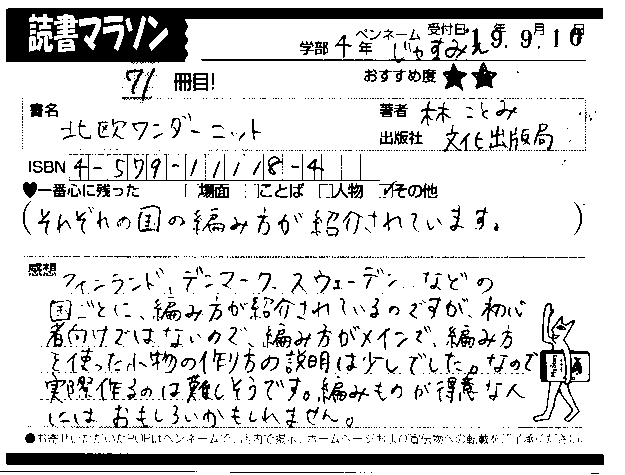 読書マラソン
学部 4年 ペンネーム じゃすみん 受付日 19年9月10日
71 冊目! おすすめ度 ★★
書名 北欧ワンダーニット
著者 林ことみ
出版社 文化出版局
ISBN 4-579-11118-4
♥一番心に残った □場面 □ことば □人物 ☑その他
(それぞれの国の編み方が紹介されています。)
感想 フィンランド、デンマーク、スウェーデン などの
国ごとに、編み方が紹介されているのですが、初心
者向けではないので、編み方がメインで、編み方
を使った小物の作り方の説明は少しでした。なので
実際作るのは難しそうです。編みものが得意な人
にはおもしろいかもしれません。
●お寄せいただいたPOPはペンネームで、店内で掲示、ホームページおよび宣伝物への転載をご了承ください。